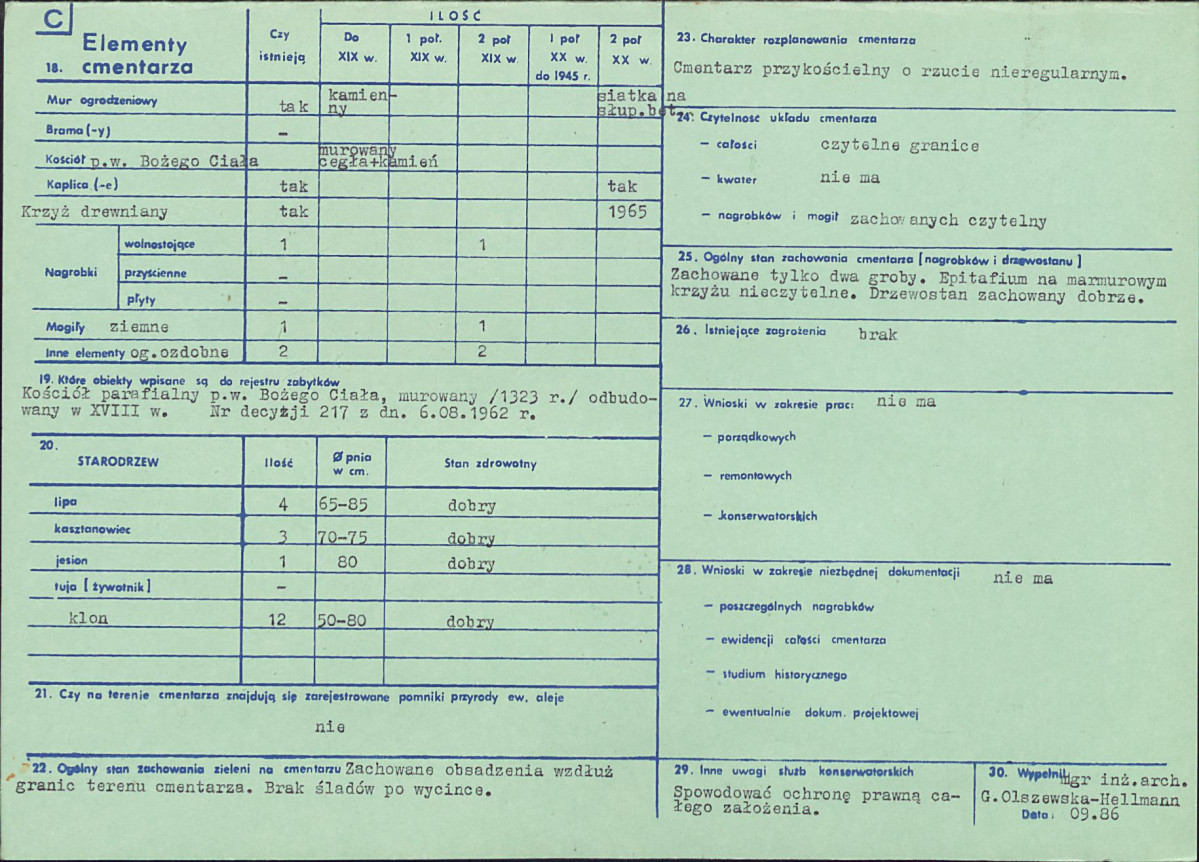 C
Elementy
18. cmentarza
Czy istnieją
ILOŚĆ
Do XIX w.
1 poł. XIX w.
2 poł XIX w
I poł XX w. do 1945 r.
2 poł XX w.
Mur ogrodzeniowy tak kamien- siatka na
ny słup.bet.
Brama (-y) –
murowany
Kościół p.w. Bożego Ciała cegła+kamień
Kaplica (-e) tak tak
Krzyż drewniany tak 1965
Nagrobki
wolnostojące 1 1
przyścienne –
płyty –
Mogiły ziemne 1 1
Inne elementy og.ozdobne 2 2
19. Które obiekty wpisane są do rejestru zabytków
Kościół parafialny p.w. Bożego Ciała, murowany /1323 r./ odbudo-
wany w XVIII w. Nr decyzji 217 z dn. 6.08.1962 r.
20.
STARODRZEW Ilość Ø pnia w cm. Stan zdrowotny
lipa 4 65-85 dobry
kasztanowiec 3 70-75 dobry
jesion 1 80 dobry
tuja [żywotnik] –
klon 12 50-80 dobry
21. Czy na terenie cmentarza znajdują się zarejestrowane pomniki przyrody ew. aleje
nie
22. Ogólny stan zachowania zieleni na cmentarzu Zachowane obsadzenia wzdłuż
granic terenu cmentarza. Brak śladów po wycince.
23. Charakter rozplanowania cmentarza
Cmentarz przykościelny o rzucie nieregularnym.
24. Czytelność układu cmentarza
– całości czytelne granice
– kwater nie ma
– nagrobków i mogił zachowanych czytelny
25. Ogólny stan zachowania cmentarza [nagrobków i drzewostanu]
Zachowane tylko dwa groby. Epitafium na marmurowym
krzyżu nieczytelne. Drzewostan zachowany dobrze.
26. Istniejące zagrożenia brak
27. Wnioski w zakresie prac: nie ma
– porządkowych
– remontowych
– konserwatorskich
28. Wnioski w zakresie niezbędnej dokumentacji nie ma
– poszczególnych nagrobków
– ewidencji całości cmentarza
– studium historycznego
– ewentualnie dokum. projektowej
29. Inne uwagi służb konserwatorskich
Spowodować ochronę prawną ca-
łego założenia.
30. Wypełnił: mgr inż.arch.
G.Olszewska-Hellmann
Data: 09.86